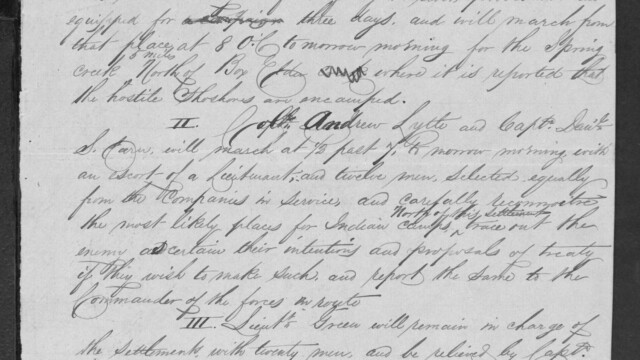 equipped for three days, and will march from
that place at 8 O.C to morrow morning for the Spring
creek 8 miles North of Box Elder where it is reported that
the hostile Shoshons are encamped.
II Capt. Andrew Lytle and Capt. Danl.
S. will march at ½ past 7 to morrow morning, with
an escort of a Lieutenant, and twelve men, selected equally
from the Companies in service, and carefully reconnoitre
the most likely places for Indian camps North of this settlement, trace out the
enemy ascertain their intentions and proposals of treaty
if they wish to make such, and report the same to the
Commander of the forces in route
III. Lieut. Green will remain in charge of
the settlement, with twenty men, and be relieved by Capt.